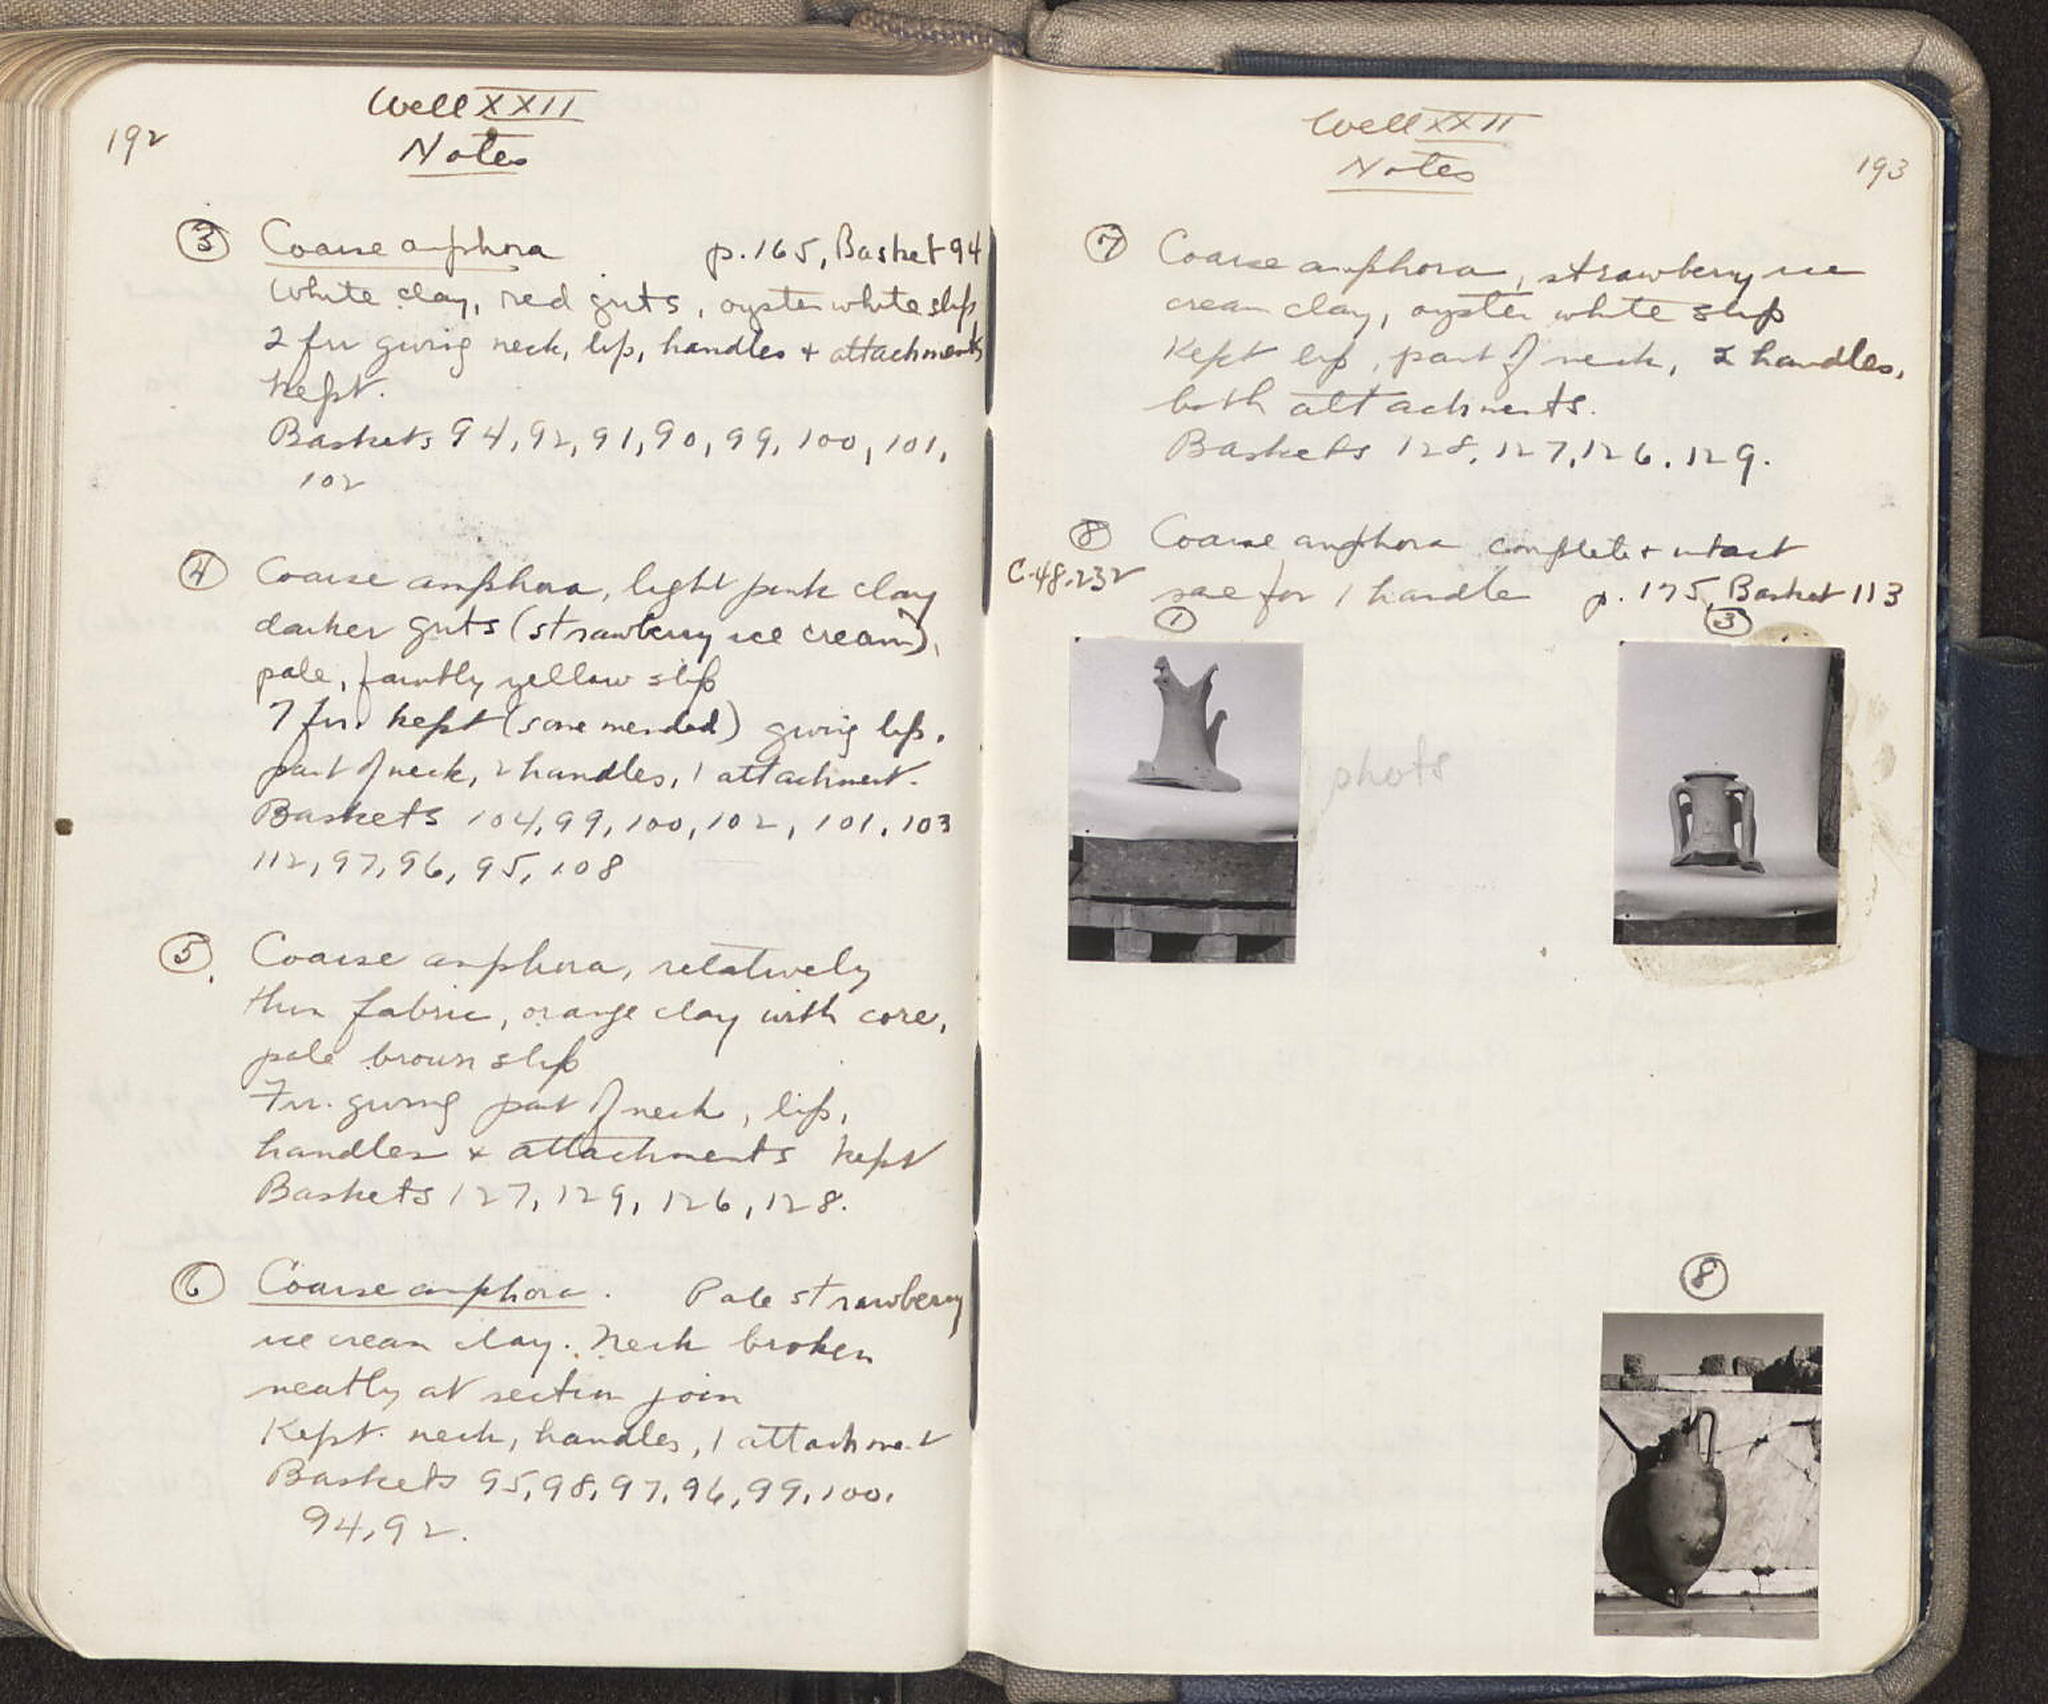 192
Well XXII
Notes
③ Coarse amphora p.165, Basket 94
White clay, red grits, oyster white slip
2 frr giving neck, lip, handles + attachments
kept.
Baskets 94, 92, 91, 90, 99, 100, 101,
102
④ Coarse amphora, light pink clay
darker grits (strawberry ice cream),
pale, faintly yellow slip
7 frr. kept (some mended) giving lip,
part of neck, 2 handles, 1 attachment.
Baskets 104, 99, 100, 102, 101, 103
112, 97, 96, 95, 108
⑤ Coarse amphora, relatively
thin fabric, orange clay with core,
pale brown slip
Frr. giving part of neck, lip,
handles + attachments kept
Baskets 127, 129, 126, 128.
⑥ Coarse amphora. Pale strawberry
ice cream clay. Neck broken
neatly at section join
Kept neck, handles, 1 attachment
Baskets 95, 98, 97, 96, 99, 100,
94, 92.
Well XXII
Notes
193
⑦ Coarse amphora, strawberry ice
cream clay, oyster white slip
Kept lip, part of neck, 2 handles,
both attachments.
Baskets 128, 127, 126, 129.
⑧ Coarse amphora complete + intact
C-48-232 save for 1 handle p. 175, Basket 113
① ③
phots
⑧